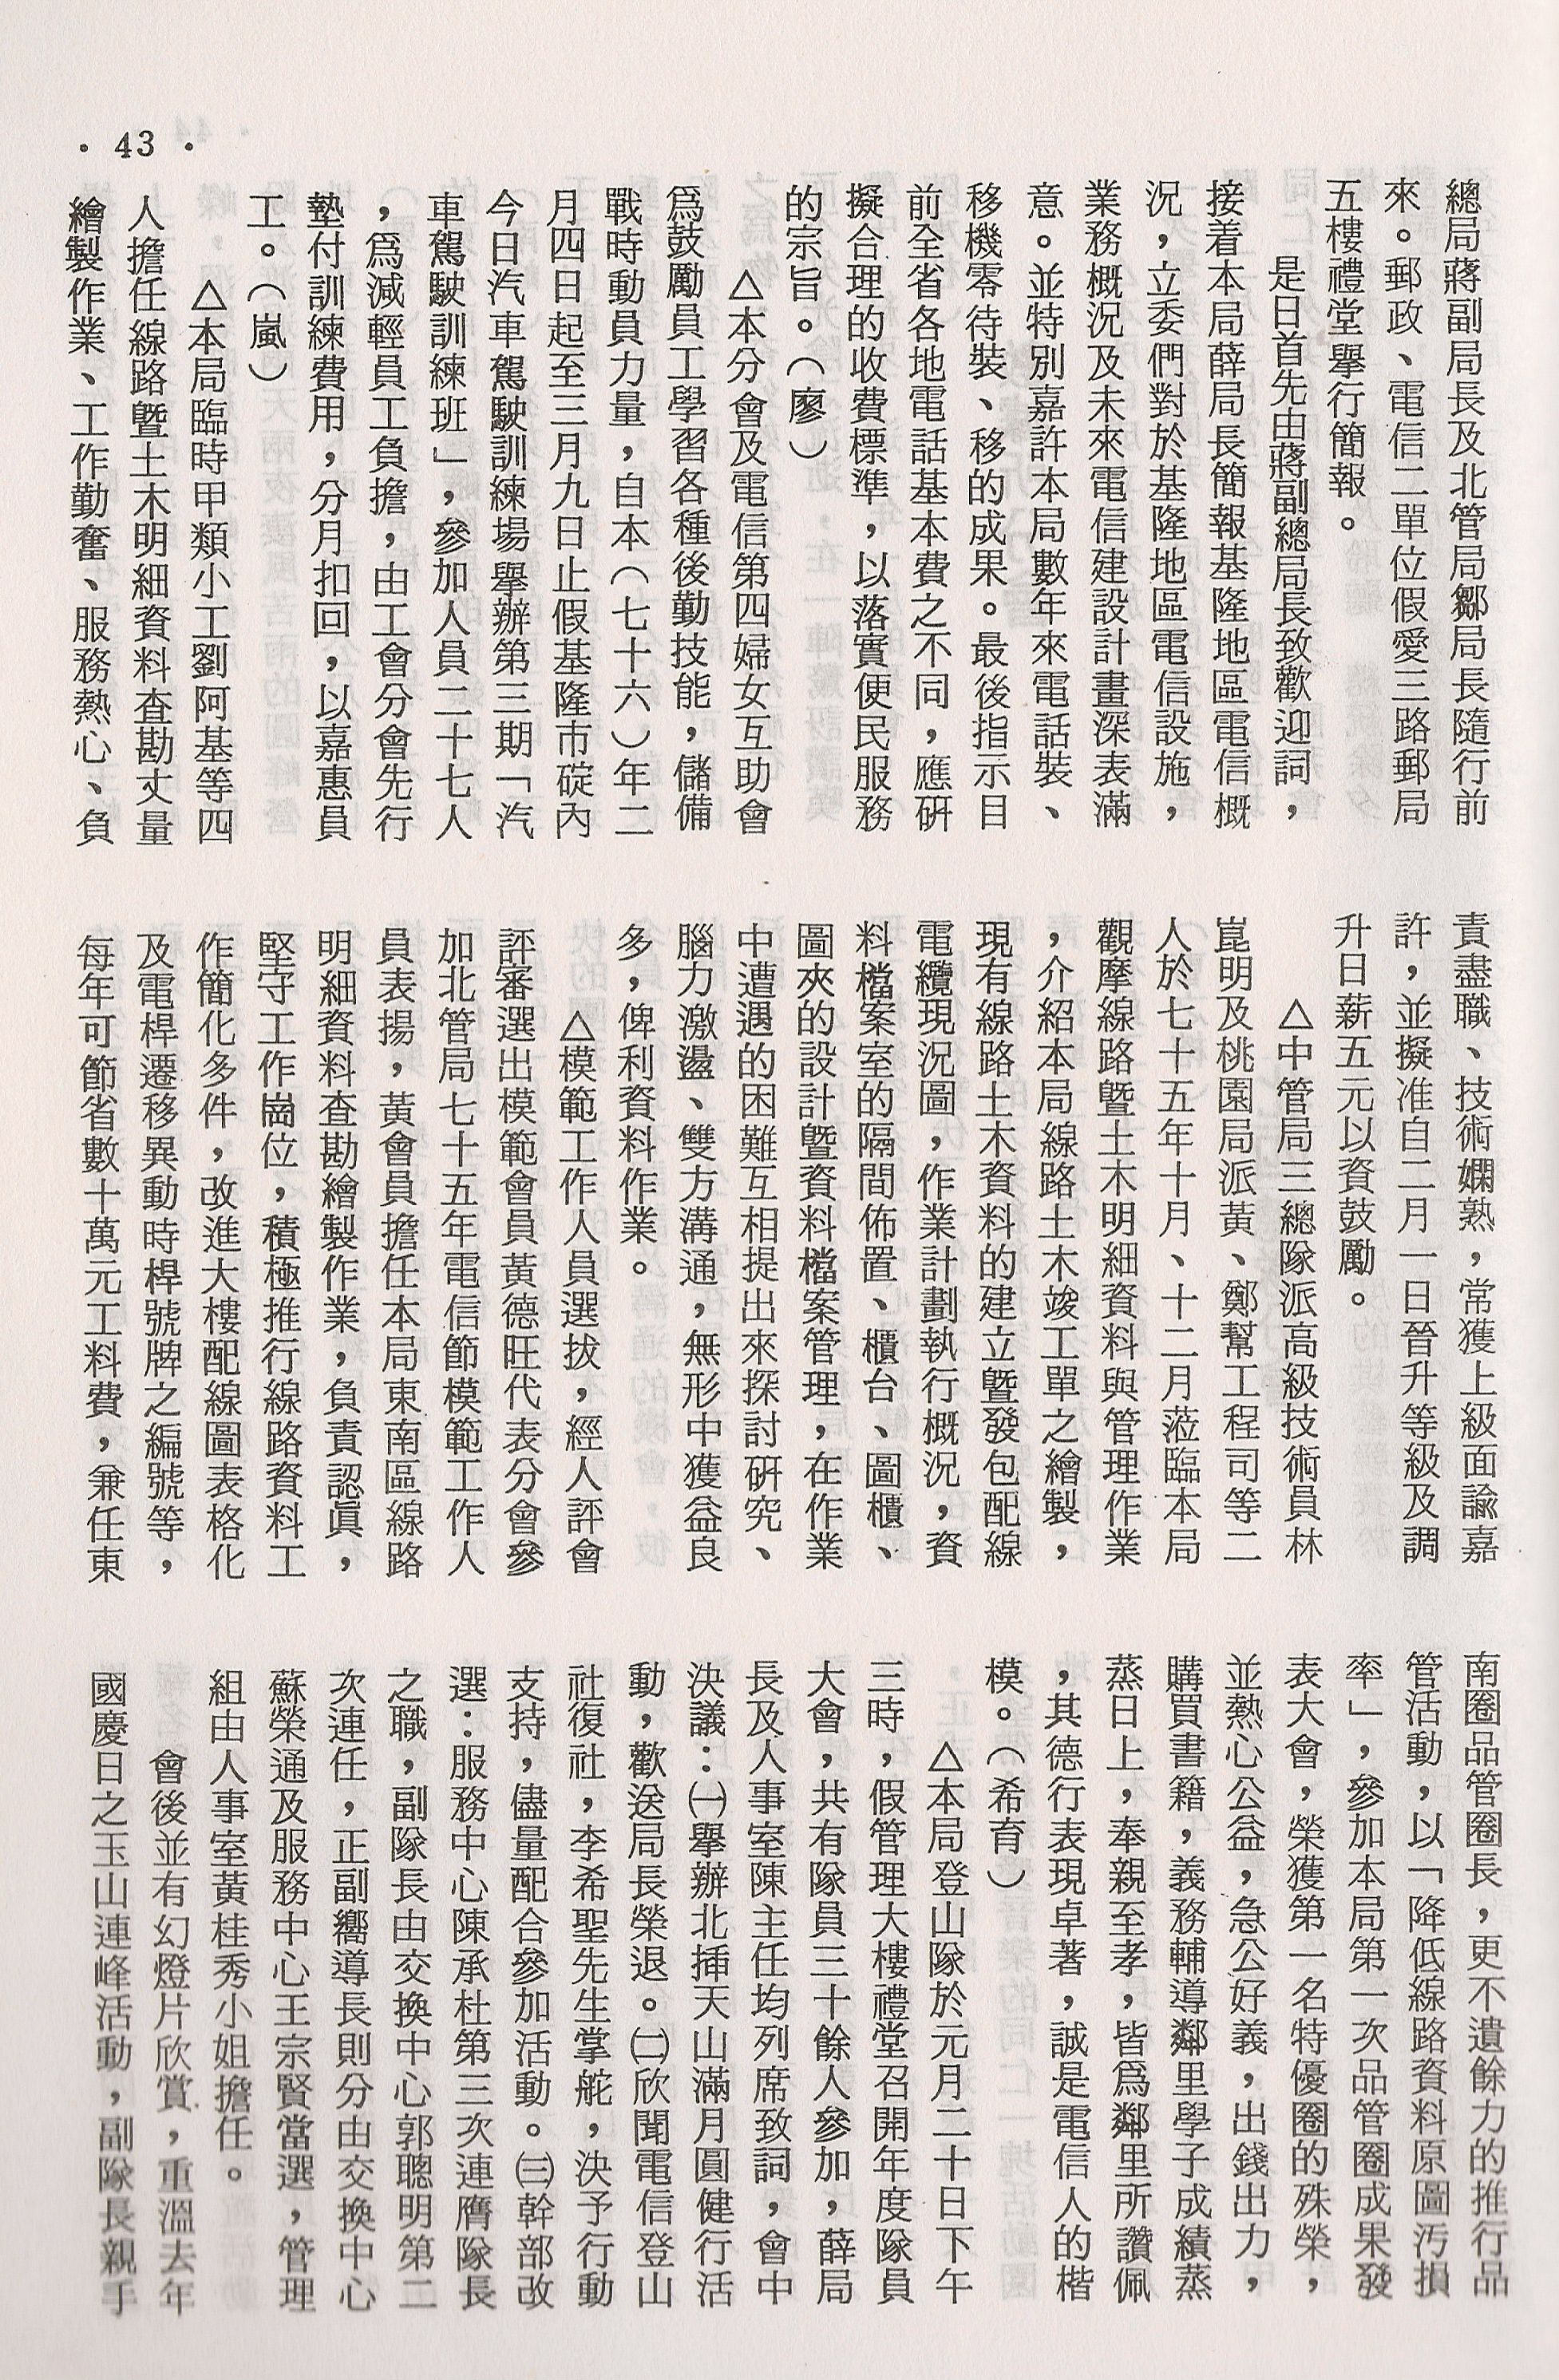 · 43 ·
總局蔣副局長及北管局鄒局長隨行前
來。郵政、電信二單位假愛三路郵局
五樓禮堂舉行簡報。
是日首先由蔣副總局長致歡迎詞，
接着本局薛局長簡報基隆地區電信概
況，立委們對於基隆地區電信設施，
業務概況及未來電信建設計畫深表滿
意。並特別嘉許本局數年來電話裝、
移機零待裝、移的成果。最後指示目
前全省各地電話基本費之不同，應研
擬合理的收費標準，以落實便民服務
的宗旨。（廖）
△本分會及電信第四婦女互助會
爲鼓勵員工學習各種後勤技能，儲備
戰時動員力量，自本（七十六）年二
月四日起至三月九日止假基隆市碇內
今日汽車駕駛訓練場舉辦第三期「汽
車駕駛訓練班」，參加人員二十七人
，爲減輕員工負擔，由工會分會先行
墊付訓練費用，分月扣回，以嘉惠員
工。（嵐）
△本局臨時甲類小工劉阿基等四
人擔任線路曁土木明細資料查勘丈量
繪製作業、工作勤奮、服務熱心、負
責盡職、技術嫻熟，常獲上級面諭嘉
許，並擬准自二月一日晉升等級及調
升日薪五元以資鼓勵。
△中管局三總隊派高級技術員林
崑明及桃園局派黃、鄭幫工程司等二
人於七十五年十月、十二月蒞臨本局
觀摩線路曁土木明細資料與管理作業
，介紹本局線路土木竣工單之繪製，
現有線路土木資料的建立曁發包配線
電纜現況圖，作業計劃執行概況，資
料檔案室的隔間佈置、櫃台、圖櫃、
圖夾的設計曁資料檔案管理，在作業
中遭遇的困難互相提出來探討研究、
腦力激盪、雙方溝通，無形中獲益良
多，俾利資料作業。
△模範工作人員選拔，經人評會
評審選出模範會員黃德旺代表分會參
加北管局七十五年電信節模範工作人
員表揚，黃會員擔任本局東南區線路
明細資料查勘繪製作業，負責認眞，
堅守工作崗位，積極推行線路資料工
作簡化多件，改進大樓配線圖表格化
及電桿遷移異動時桿號牌之編號等，
每年可節省數十萬元工料費，兼任東
南圈品管圈長，更不遺餘力的推行品
管活動，以「降低線路資料原圖汚損
率」，參加本局第一次品管圈成果發
表大會，榮獲第一名特優圈的殊榮，
並熱心公益，急公好義，出錢出力，
購買書籍，義務輔導鄰里學子成績蒸
蒸日上，奉親至孝，皆爲鄰里所讚佩
，其德行表現卓著，誠是電信人的楷
模。（希育）
△本局登山隊於元月二十日下午
三時，假管理大樓禮堂召開年度隊員
大會，共有隊員三十餘人參加，薛局
長及人事室陳主任均列席致詞，會中
決議：㈠舉辦北挿天山滿月圓健行活
動，歡送局長榮退。㈡欣聞電信登山
社復社，李希聖先生掌舵，決予行動
支持，儘量配合參加活動。㈢幹部改
選：服務中心陳承杜第三次連膺隊長
之職，副隊長由交換中心郭聰明第二
次連任，正副嚮導長則分由交換中心
蘇榮通及服務中心王宗賢當選，管理
組由人事室黃桂秀小姐擔任。
會後並有幻燈片欣賞，重溫去年
國慶日之玉山連峰活動，副隊長親手